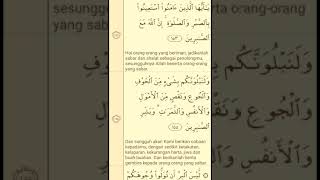 يَٰٓأَيُّهَا ٱلَّذِينَ ءَامَنُوا۟ ٱسْتَعِينُوا۟
بِٱلصَّبْرِ وَٱلصَّلَوٰةِ ۚ إِنَّ ٱللَّهَ مَعَ
ٱلصَّٰبِرِينَ ١٥٣
Hai orang-orang yang beriman, jadikanlah
sabar dan shalat sebagai penolongmu,
sesungguhnya Allah beserta orang-orang
yang sabar.
وَلَنَبْلُوَنَّكُم بِشَىْءٍ مِّنَ ٱلْخَوْفِ
وَٱلْجُوعِ وَنَقْصٍ مِّنَ ٱلْأَمْوَٰلِ
وَٱلْأَنفُسِ وَٱلثَّمَرَٰتِ ۗ وَبَشِّرِ
ٱلصَّٰبِرِينَ ١٥٥
Dan sungguh akan Kami berikan cobaan
kepadamu, dengan sedikit ketakutan,
kelaparan, kekurangan harta, jiwa dan
buah-buahan. Dan berikanlah berita
gembira kepada orang-orang yang sabar.
لَّيْسَ ٱلْبِرَّ أَن تُوَلُّوا۟ وُجُوهَكُمْ